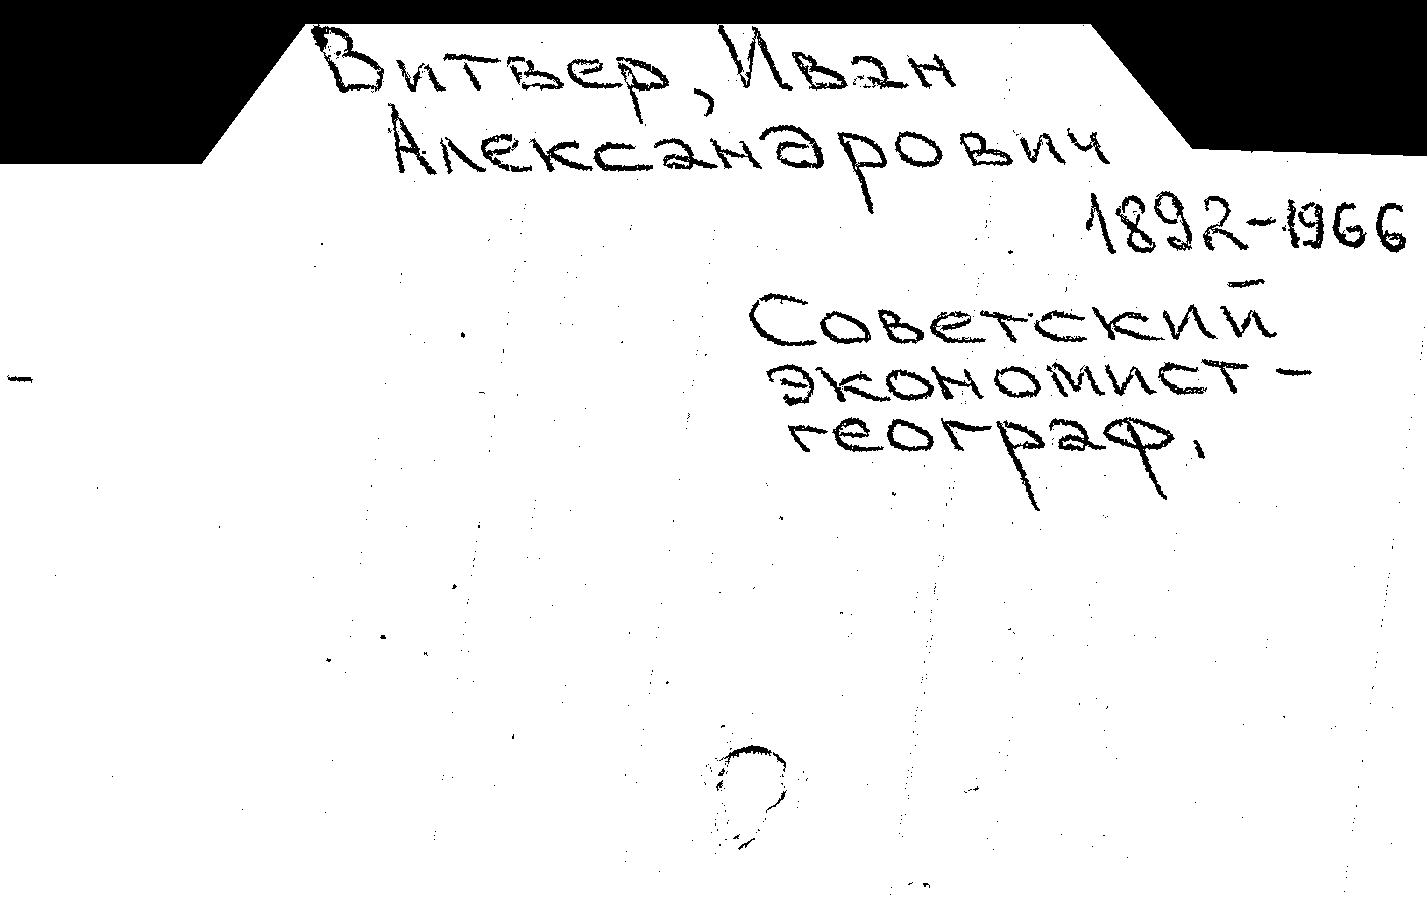 Витвер, Иван
Александрович
1892-1966
Советский
экономист-
географ.